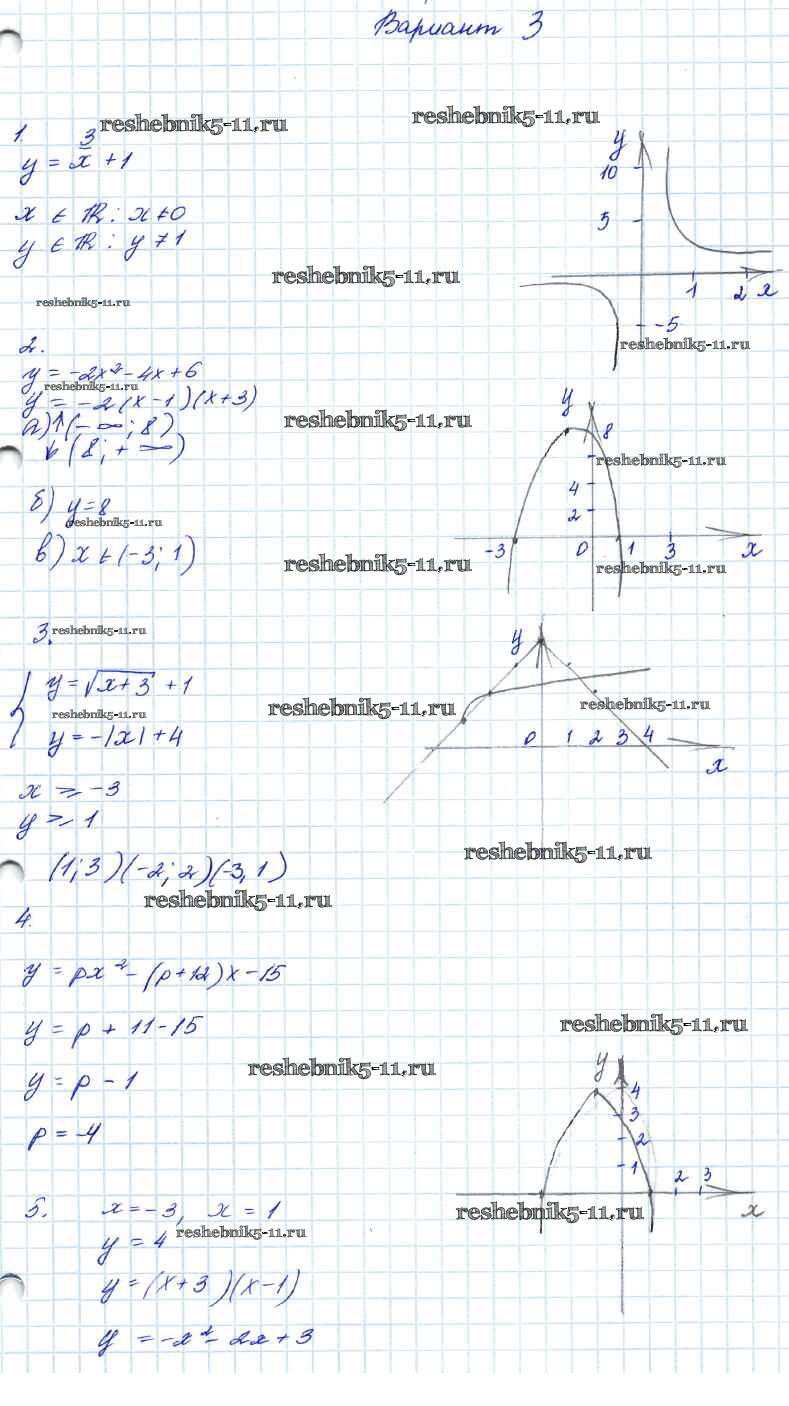 Вариант 3
reshebnik5-11.ru
reshebnik5-11.ru
1.
y = 3/x + 1
x ∈ ℝ: x ≠ 0
y ∈ ℝ: y ≠ 1
y
10
5
1 2 x
-5
reshebnik5-11.ru
reshebnik5-11.ru
reshebnik5-11.ru
2.
y = -2x² - 4x + 6
reshebnik5-11.ru
y = -2(x-1)(x+3)
а) ↑(-∞; 8)
↓(8; +∞)
reshebnik5-11.ru
y
8
reshebnik5-11.ru
4
2
-3 0 1 3 x
б) y = 8
reshebnik5-11.ru
в) x ∈ (-3; 1)
reshebnik5-11.ru
reshebnik5-11.ru
3.
reshebnik5-11.ru
{ y = √x+3 + 1
reshebnik5-11.ru
y = -|x| + 4
reshebnik5-11.ru
y
reshebnik5-11.ru
0 1 2 3 4
x
x ≥ -3
y ≥ 1
reshebnik5-11.ru
(1; 3) (-2; 2) (-3, 1)
reshebnik5-11.ru
4.
y = px² - (p+12)x - 15
y = p + 11 - 15
reshebnik5-11.ru
reshebnik5-11.ru
y = p - 1
p = -4
y
4
3
2
1
2 3
x
5. x = -3, x = 1
reshebnik5-11.ru
reshebnik5-11.ru
y = 4
y = (x+3)(x-1)
y = -x² - 2x + 3